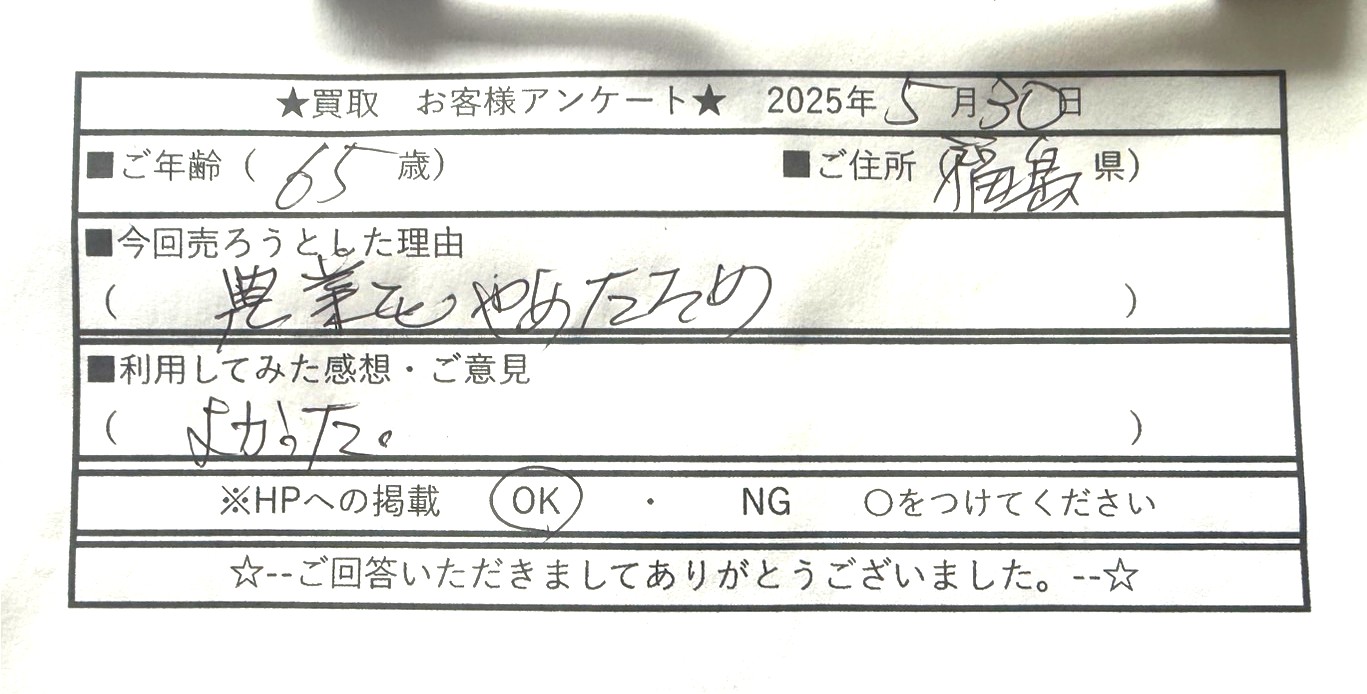 ★買取 お客様アンケート★ 2025年5月30日
■ご年齢(65歳) ■ご住所(福島県)
■今回売ろうとした理由
(農業をやめたため)
■利用してみた感想・ご意見
(よかった。)
※HPへの掲載 OK ・ NG ○をつけてください
☆--ご回答いただきましてありがとうございました。--☆